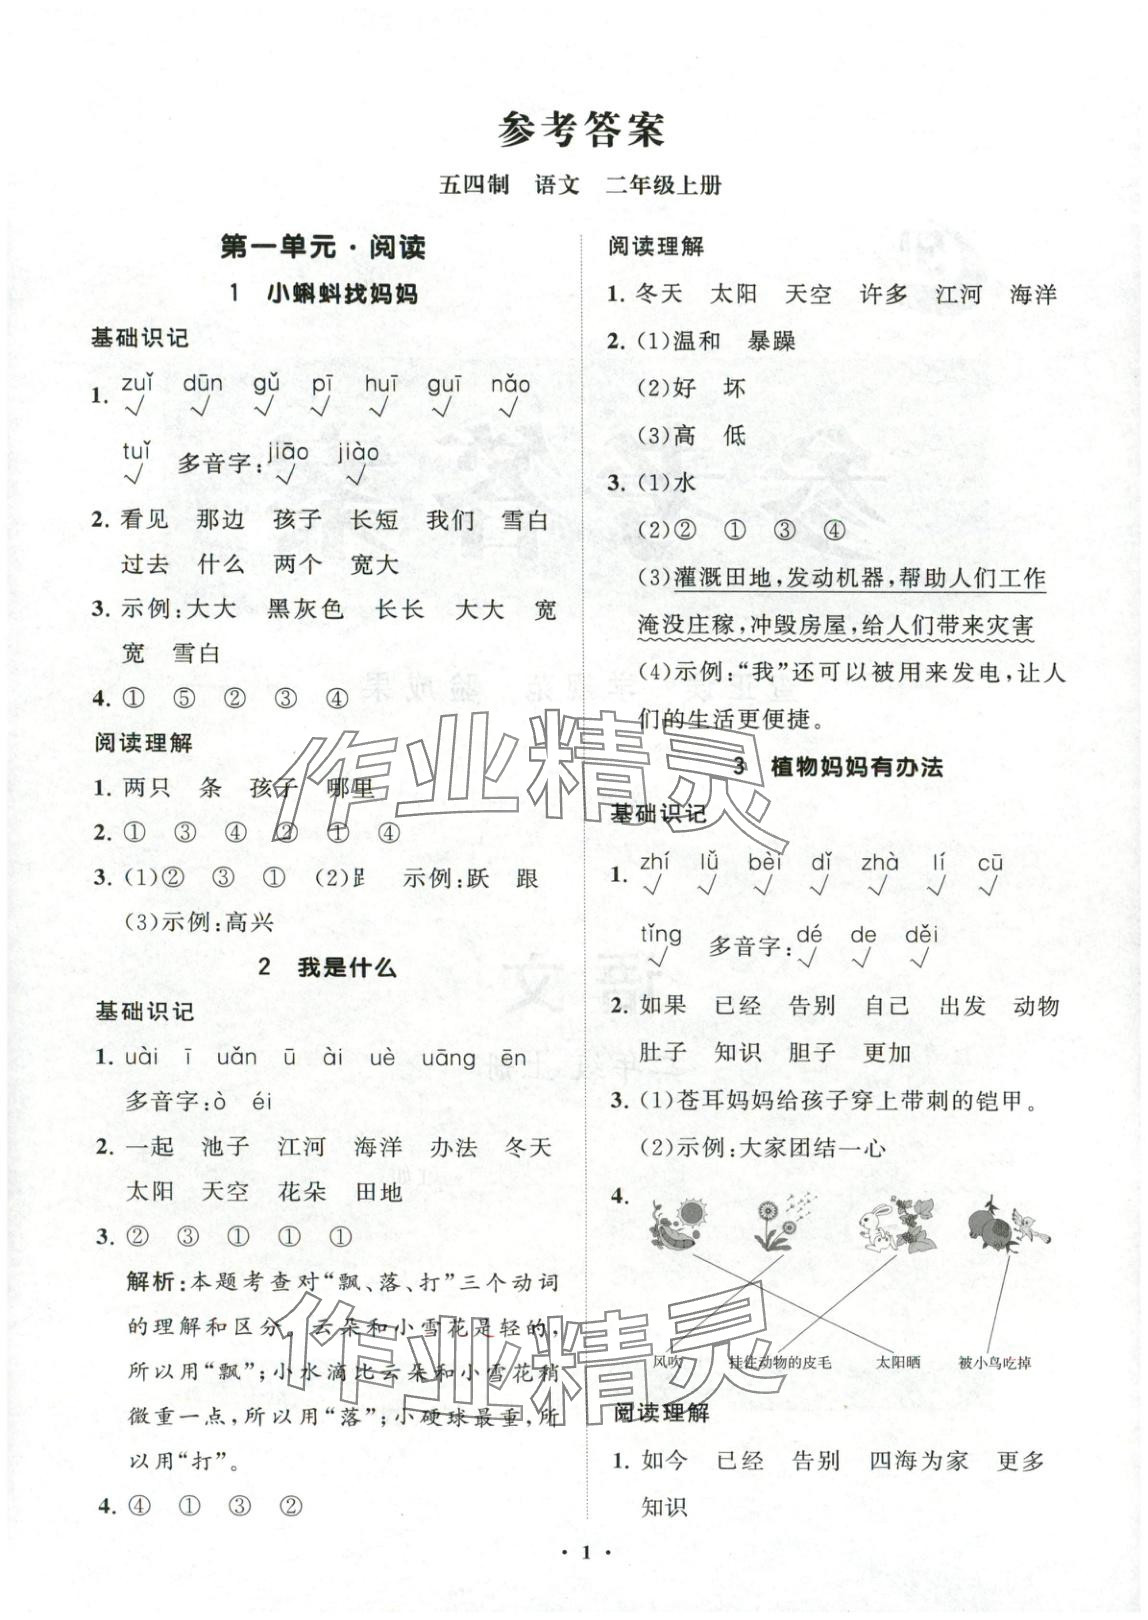 参考答案
五四制 语文 二年级上册
第一单元·阅读
1 小蝌蚪找妈妈
基础识记
1. zuǐ dūn gǔ pī huī guī nǎo
tuǐ 多音字:jiāo jiào
2. 看见 那边 孩子 长短 我们 雪白
过去 什么 两个 宽大
3. 示例:大大 黑灰色 长长 大大 宽
宽 雪白
4. ① ⑤ ② ③ ④
阅读理解
1. 两只 条 孩子 哪里
2. ① ③ ④ ② ① ④
3. (1)② ③ ① (2)𧾷 示例:跃 跟
(3)示例:高兴
2 我是什么
基础识记
1. uài ī uǎn ū ài uè uāng ēn
多音字:ò éi
2. 一起 池子 江河 海洋 办法 冬天
太阳 天空 花朵 田地
3. ② ③ ① ① ①
解析:本题考查对“飘、落、打”三个动词
的理解和区分。云朵和小雪花是轻的,
所以用“飘”;小水滴比云朵和小雪花稍
微重一点,所以用“落”;小硬球最重,所
以用“打”。
4. ④ ① ③ ②
阅读理解
1. 冬天 太阳 天空 许多 江河 海洋
2. (1)温和 暴躁
(2)好 坏
(3)高 低
3. (1)水
(2)② ① ③ ④
(3)灌溉田地,发动机器,帮助人们工作
淹没庄稼,冲毁房屋,给人们带来灾害
(4)示例:“我”还可以被用来发电,让人
们的生活更便捷。
3 植物妈妈有办法
基础识记
1. zhí lǚ bèi dǐ zhà lí cū
tǐng 多音字:dé de děi
2. 如果 已经 告别 自己 出发 动物
肚子 知识 胆子 更加
3. (1)苍耳妈妈给孩子穿上带刺的铠甲。
(2)示例:大家团结一心
4.
风吹 挂住动物的皮毛 太阳晒 被小鸟吃掉
阅读理解
1. 如今 已经 告别 四海为家 更多
知识
· 1 ·
作业精灵
作业精灵